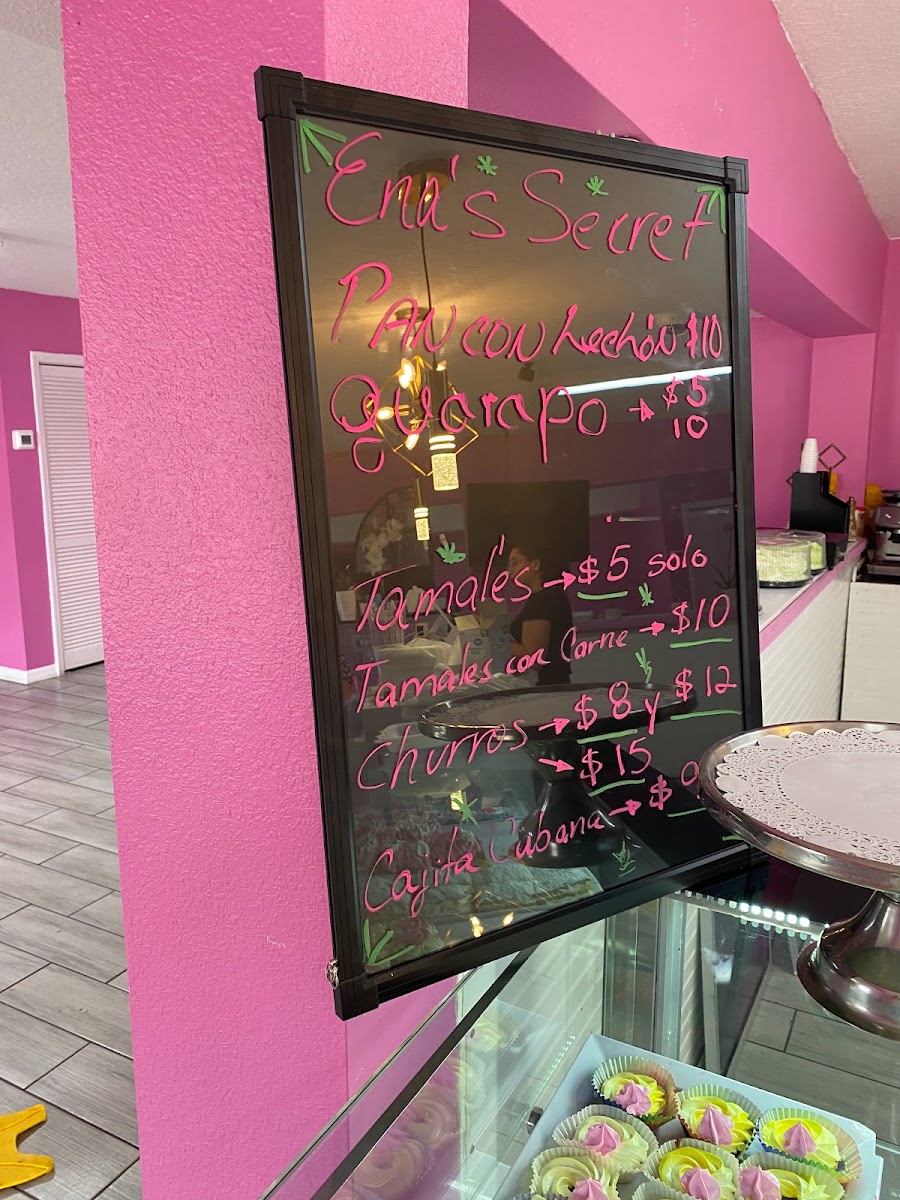 Ena's Secret
PAN CON Lechón $10
Guarapo → $5
10
Tamales → $5 solo
Tamales con Carne → $10
Churros → $8 y $12
→ $15
Cajita Cubana → $9